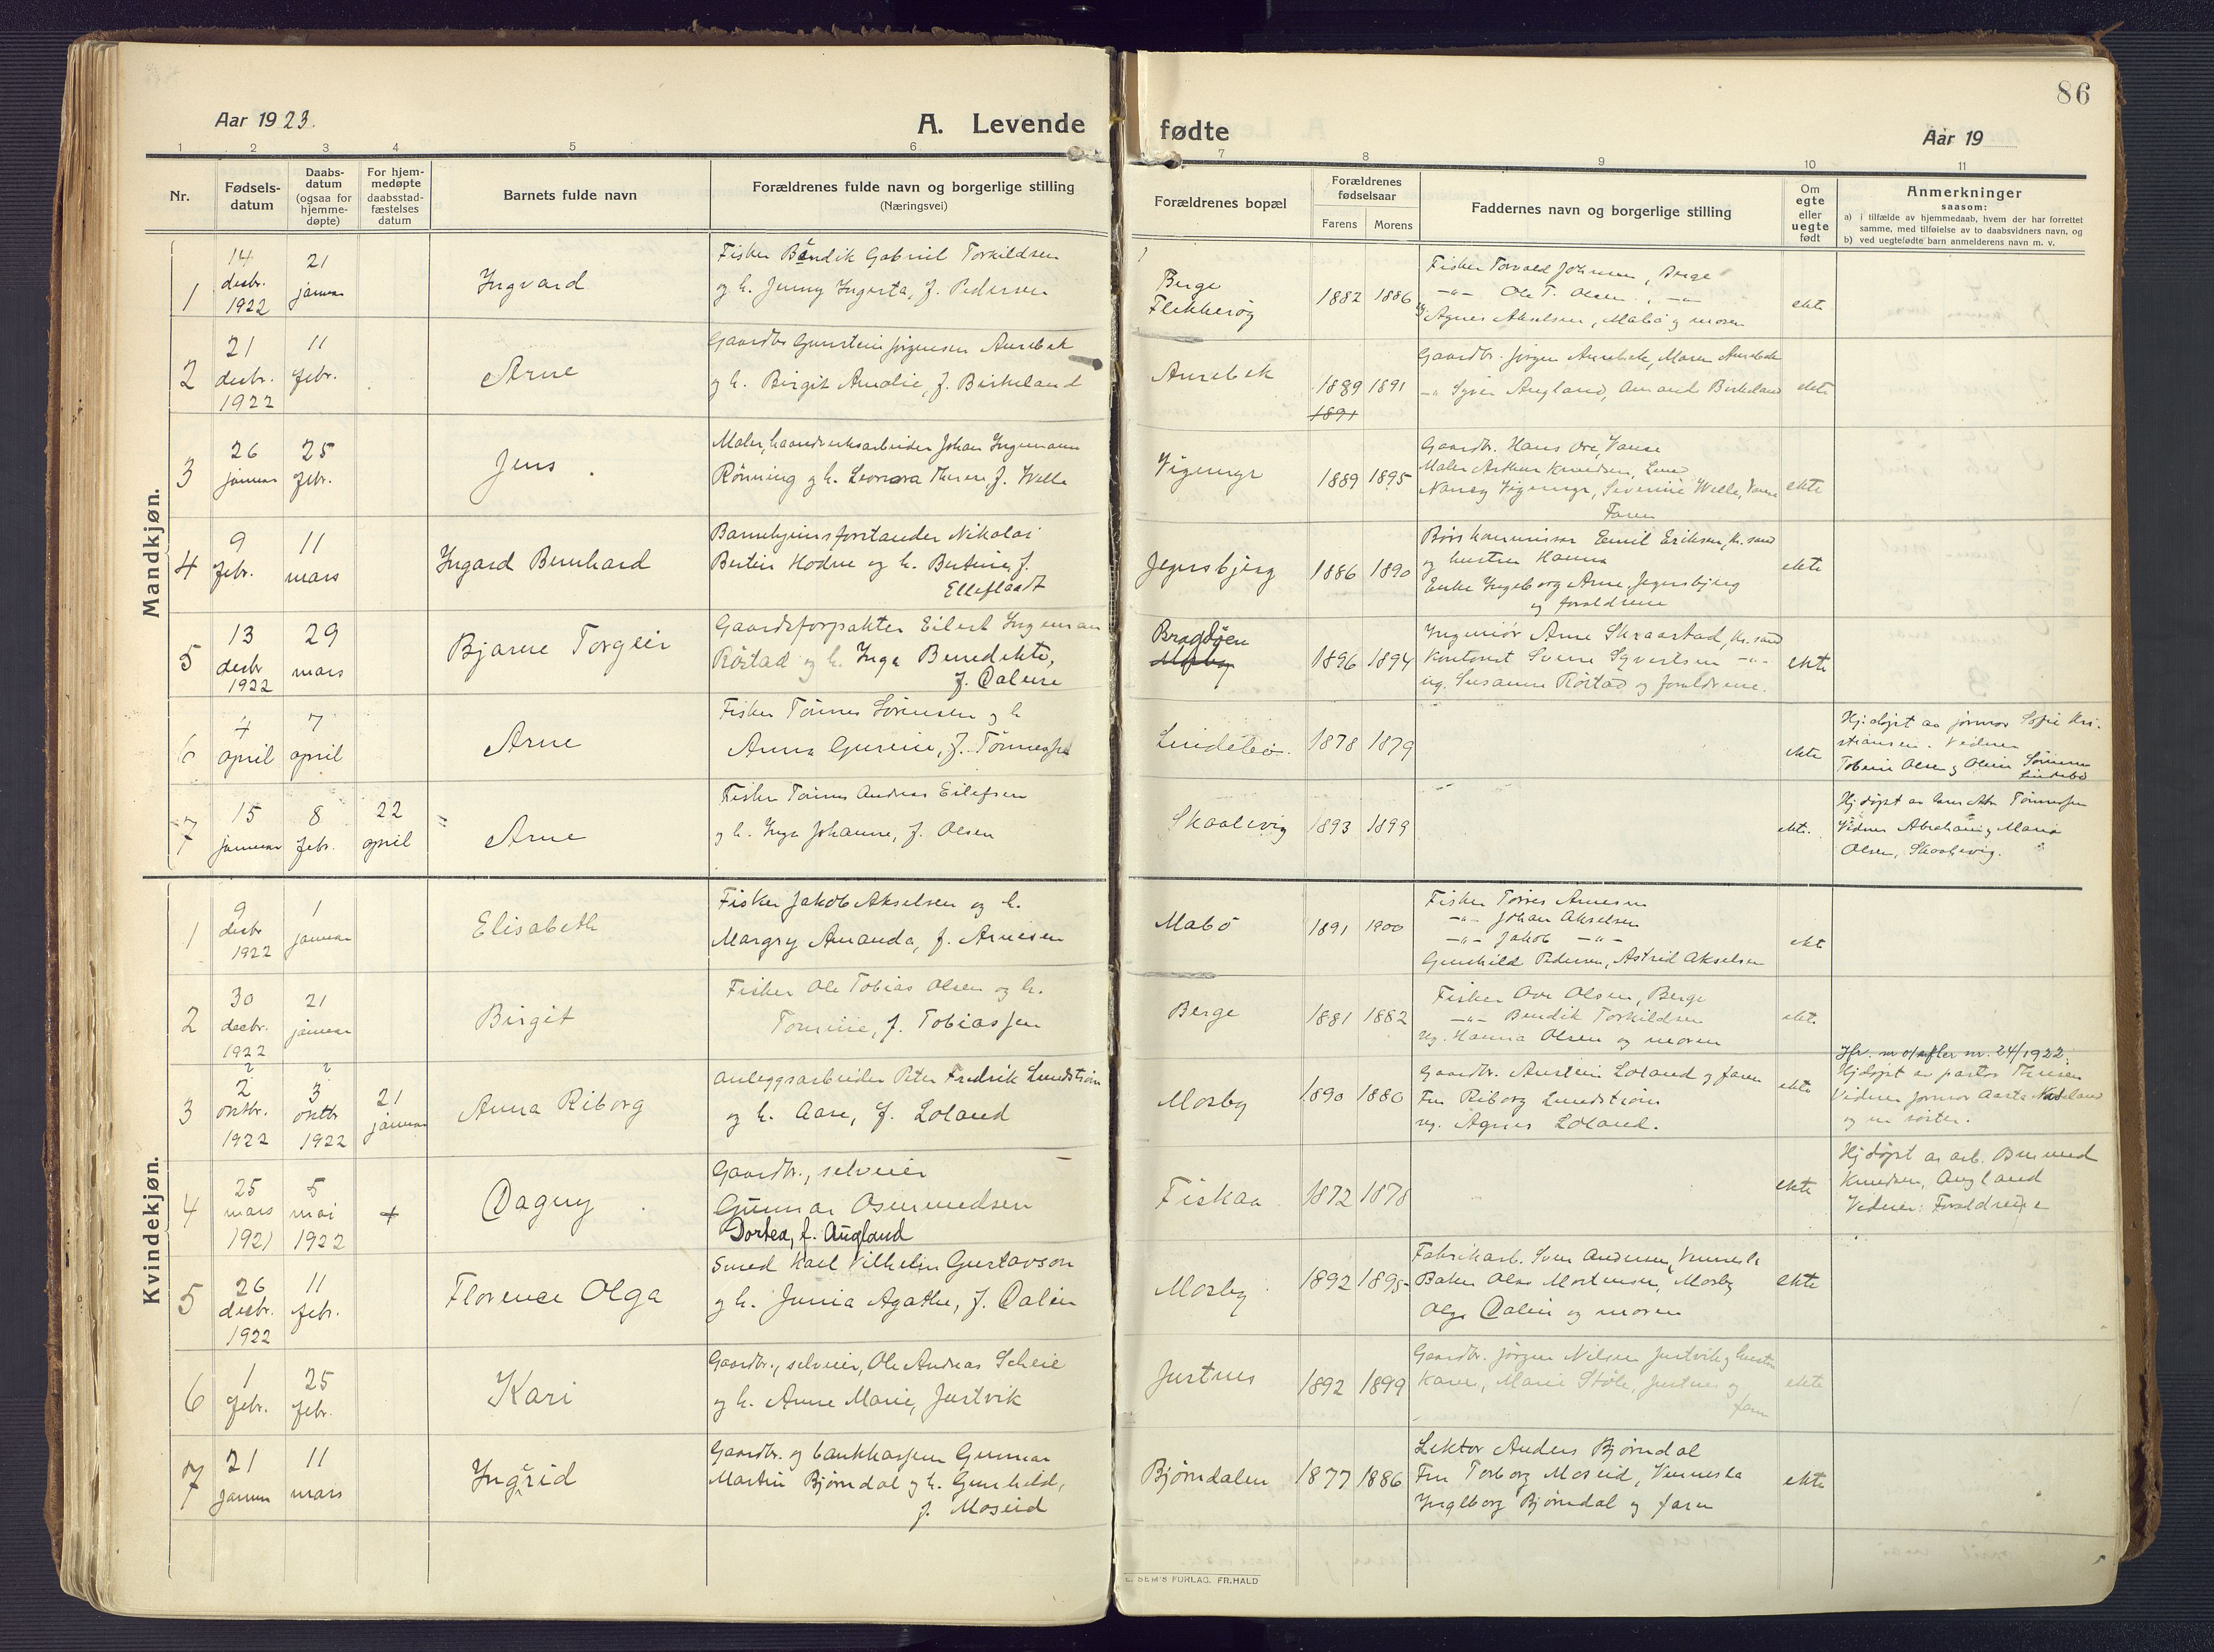 86
Aar 1923.
A. Levende fødte
Aar 19
1 2 3 4 5 6 7 8 9 10 11
Nr.
Fødsels-
datum
Daabs-
datum
(ogsaa for
hjemme-
døpte)
For hjem-
medøpte
daabsstad-
fæstelses
datum
Barnets fulde navn
Forældrenes fulde navn og borgerlige stilling
(Næringsvei)
Forældrenes bopæl
Forældrenes
fødselsaar
Farens Morens
Faddernes navn og borgerlige stilling
Om
egte
eller
uegte
født
Anmerkninger
saasom:
a) i tilfælde av hjemmedaab, hvem der har forrettet
samme, med tilføielse av to daabsvidners navn, og
b) ved uegtefødte barn anmelderens navn m. v.
Mandkjøn.
1
14
desbr.
1922
21
januar
Ingvard
Fisker Bendik Gabriel Torkildsen
og h. Jenny Ingerta, f. Pedersen
Berge
Flekkerøy
1882 1886
Fisker Torvald Johnsen, Berge
-"- Ole T. Olsen, -"-
Agnes Akselsen, Mabø og moren
ekte
2
21
desbr.
1922
11
febr.
Arne
Gaardbr. Gunstein Jørgensen Aurebek
og h. Birgit Amalie, f. Birkeland
Aurebek
1889 1891
1891
Gaardbr. Jørgen Aurebek, Maren Aurebek
-"- Syver Augland, Amand Birkeland
ekte
3
26
januar
25
febr.
Jens.
Maler, haandverksarbeider Johan Ingemann
Rønning og h. Leonora Therese f. Wille
Vigemyr
1889 1895
Gaardbr. Hans Ore, Vanse
Maler Arthur Knudsen, Lund
Nancy Vigemyr, Severine Wille, Vanse
Faren
ekte
4
9
febr.
11
mars
Ingard Bernhard
Barnehjemsforstander Nikolai
Bertin Hodne og h. Bertine, f.
Elleflaadt
Jegersbjerg
1886 1890
Børskommissær Emil Eriksen, Kr.sand
og hustru Hanna
Enke Ingeborg Arne, Jegersbjerg
og forældrene
ekte
5
13
desbr
1922
29
mars
Bjarne Torgeir
Gaardsforpakter Eilert Ingeman
Røstad og h. Inga Benedikte,
f. Dalene
Bragdøen
Mosby
1896 1894
Ingeniør Arne Skraastad, Kr.sand
Kontorist Sverre Syvertsen -"-
ug. Susanne Røstad og forældrene.
ekte
6
4
april
7
april
Arne
Fisker Tønnes Sørensen og h
Anna Gurine, f. Tønnessen
Lindebø.
1878 1879
ekte
Hj.døpt av jormor Sofie Kri-
stiansen. Vidner
Tobine Olsen og Oline Sørensen
Lindebø
7
15
januar
8
febr.
22
april
Arne
Fisker Tønnes Andreas Eilefsen
og h. Inga Johanne, f. Olsen
Skaalevig
1893 1899
ekte.
Hj.døpt av lærer Abr Tønnessen
Vidner Abraham og Maria
Olsen, Skaalevig.
Kvindekjøn.
1
9
desbr
1922
1
januar
Elisabeth
Fisker Jakob Akselsen og h.
Margry Amanda, f. Arnesen
Mabø
1891 1900
Fisker Torres Arnesen
-"- Johan Akselsen
-"- Jakob -"-
Gunhild Pedersen, Astrid Akselsen
ekt
2
30
desbr.
1922
21
januar
Birgit
Fisker Ole Tobias Olsen og h.
Tomine, f. Tobiassen
Berge
1881 1882
Fisker Ove Olsen, Berge
-"- Bendik Torkildsen
ug. Hanna Olsen og moren
ekte
3
2
oktbr.
1922
3
oktbr
1922
21
januar
Anna Riborg
Anleggsarbeider Peter Fredrik Lundstrøm
og h. Aase, f. Loland
Mosby
1890 1880
Gaardbr. Austein Loland og faren
Fru Riborg Lundstrøm
ug. Agnes Loland.
ekte
Jfr. nr efter nr. 24/1922.
Hj.døpt av pastor Thuesen
Vidner jormor Aarta
og en søster.
4
25
mars
1921
5
mai
1922
+
Dagny
Gaardbr., selveier
Gunnar Osmundsen
Dortea, f. Augland
Fiskaa
1872 1878
ekte
Hj.døpt av arb. Osmund
Knudsen, Augland
Vidner: Forældrene
5
26
desbr.
1922
11
febr.
Florence Olga
Smed Karl Vilhelm Gustavson
og h. Junia Agathe, f. Dalen
Mosby
1892 1895
Fabrikarb. Sven Andersen, Vennesla
Baker Olav Mortensen, Mosby
Olga Dalen og moren
ekte
6
1
febr.
25
febr.
Kari
Gaardbr., selveier, Ole Andreas Scheie
og h. Anne Marie, Justvik
Justnes
1892 1899
Gaardbr. Jørgen Nilsen Justvik og hustru
Karen, Marie Støle, Justnes og
faren
ekte
7
21
januar
11
mars
Ingrid
Gaardbr. og bankkasserer Gunnar
Martin Bjørndal og h. Gunhild,
f. Moseid
Bjørndalen
1877 1886
Lektor Anders Bjørndal
Fru Torborg Moseid, Vennesla
Ingeborg Bjørndal og faren
ekte
SEM'S FORLAG. FR.HALD